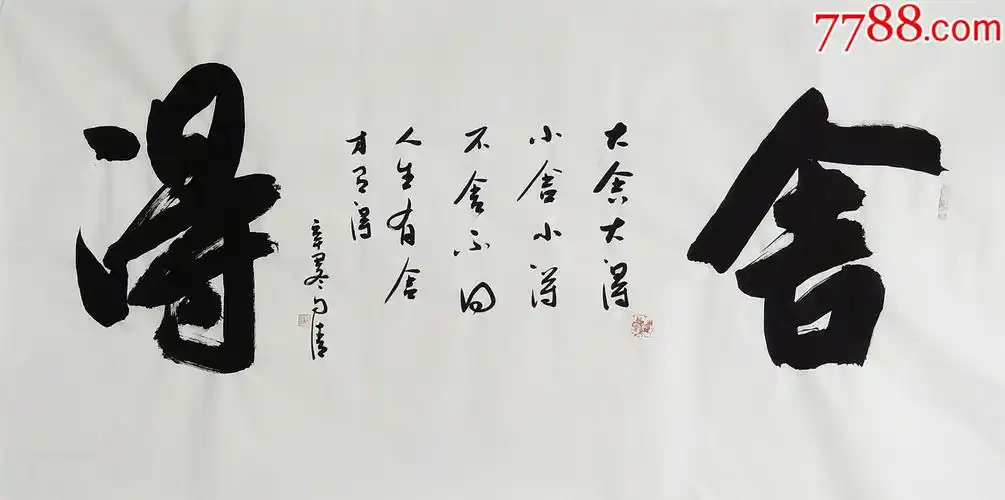 舍
大舍大得
小舍小得
不舍不得
人生有舍
才有得
得
7788.com